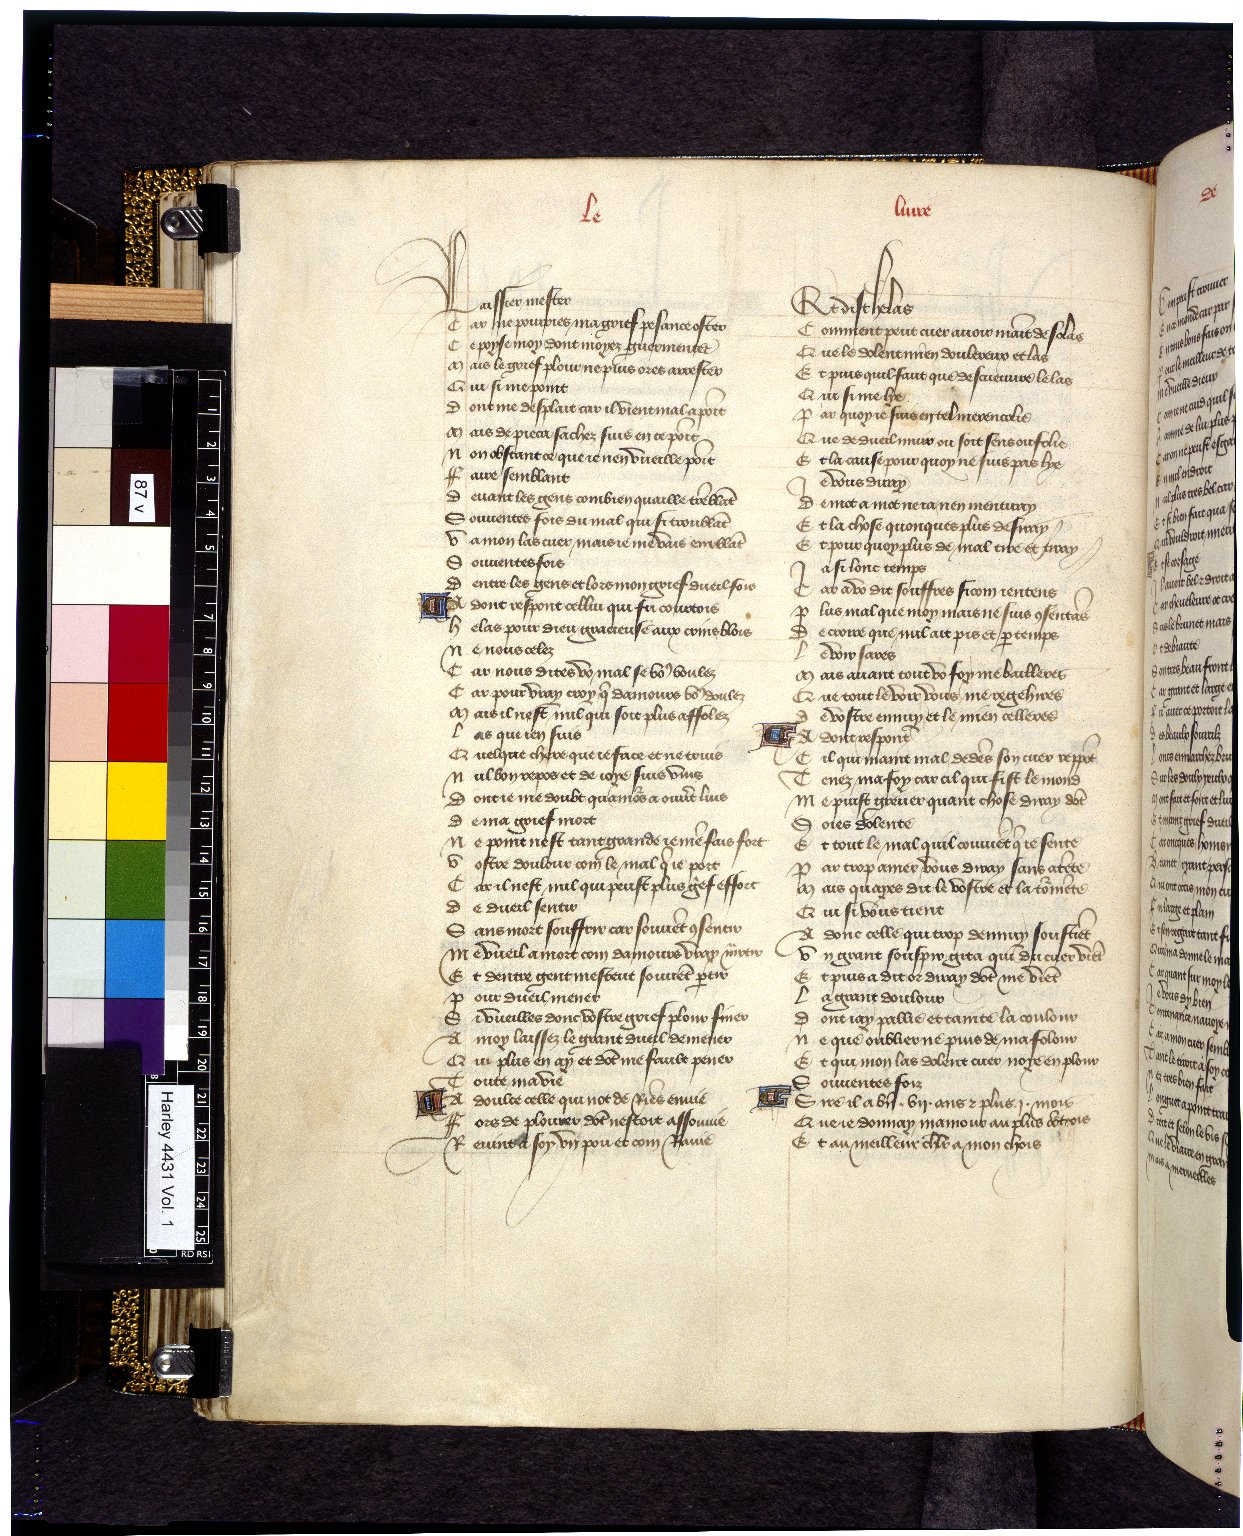 Le livre
Laissier mester
C ar ne pourries ma grief pesance oster
C e poyse moy dont moyez guermenter
M ais le grief plour ne plus ores arrester
Q ui si me point
D ont me desplait car il vient mal a point
M ais de pieca sachez suis en ce point
N on obstant ce que ie nen vueille point
F aire semblant
D evant les gens combien quaille tremblant
S ouventes fois du mal qui si troublant
V a mon las cuer mais ie me vais emblant
S ouventes fois
D entre les gens et lors mon grief dueil fois
A donc respont cellui qui fu courtois
H elas pour dieu gracieuse aux crins blois
N e nous celez
C ar nous dites vo mal se vous voulez
C ar pour vray croy que damours vous doulez
M ais il nest nul qui soit plus affolez
L as que ien suis
Q uelque chiere que ie face et ne truis
N ul bon repos et de ioye suis vuis
D ont ie me doubt quamors a ouvert luis
D e ma grief mort
N e point nest tant grande ie men fais fort
V ostre doulour com le mal que ie port
C ar il nest nul qui peust plus grief effort
D e dueil sentir
S ans mort souffrir car souvent consentir
M e vueil a mort com damours vray martir
E t dentre gent mesteut souvent partir
P our dueil mener
S i vueilles donc vostre grief plour finer
A moy laissez le grant dueil demener
Q ui plus en ay et dont me fault pener
T oute ma vie
A doulce celle qui not de riens envie
F ors de plourer dont nestoit assouvie
R evint a soy un pou et com ravie
Et dist helas
C omment peut cuer avoir maint de solas
Q ue le dolent mien doulereux et las
E t puis quil faut que descueuvre le las
Q ui si me lye
P ar quoy ie suis en tel merencolie
Q ue de dueil muir ou soit sens ou folie
E t la cause pour quoy ne suis pas lye
J e vous diray
D e mot a mot ne ia nen mentiray
E t la chose quonques plus desiray
E t pour quoy plus de mal tire et tiray
J a si lonc temps
C ar avez dit souffres si com ientens
P lus mal que moy mais ne suis consentans
D e croire que nul ait pis et par temps
L e voir sares
M ais avant tout vo foy me bailleres
Q ue tout le voir vous me regehires
D e vostre ennuy et le mien celleres
A donc respont
C il qui maint mal dedens son cuer repont
T enez ma foy car cil qui fist le mond
M e puist grever quant chose diray dont
S oies dolente
E t tout le mal quil couvient que ie sente
P ar trop amer vous diray sans atente
M ais quapres dit le vostre et la tormente
Q ui si vous tient
A donc celle qui trop dennuy soustient
V n grant souspir gita qui du cuer vient
E t puis a dit or diray dont me vient
L a grant doulour
D ont iay pallie et tainte la coulour
N e que oublier ne puis de ma folour
E t qui mon las dolent cuer noye en plour
S ouventes foiz
S ire il a bien .vii. ans z plus .i. mois
Q ue ie donnay mamour au plus courtois
E t au meilleur chlr a mon chois
de
87 v
Harley 4431 Vol. 1
1 2 3 4 5 6 7 8 9 10 11 12 13 14 15 16 17 18 19 20 21 22 23 24 25